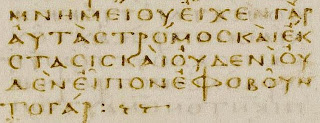 ΜΝΗΜΕΙΟΥΕΙΧΕΝΓΑΡ
ΑΥΤΑΣΤΡΟΜΟΣΚΑΙΕΚ
ΣΤΑΣΙΣΚΑΙΟΥΔΕΝΙΟΥ
ΔΕΝΕΙΠΟΝΕΦΟΒΟΥΝ
ΤΟΓΑΡ: